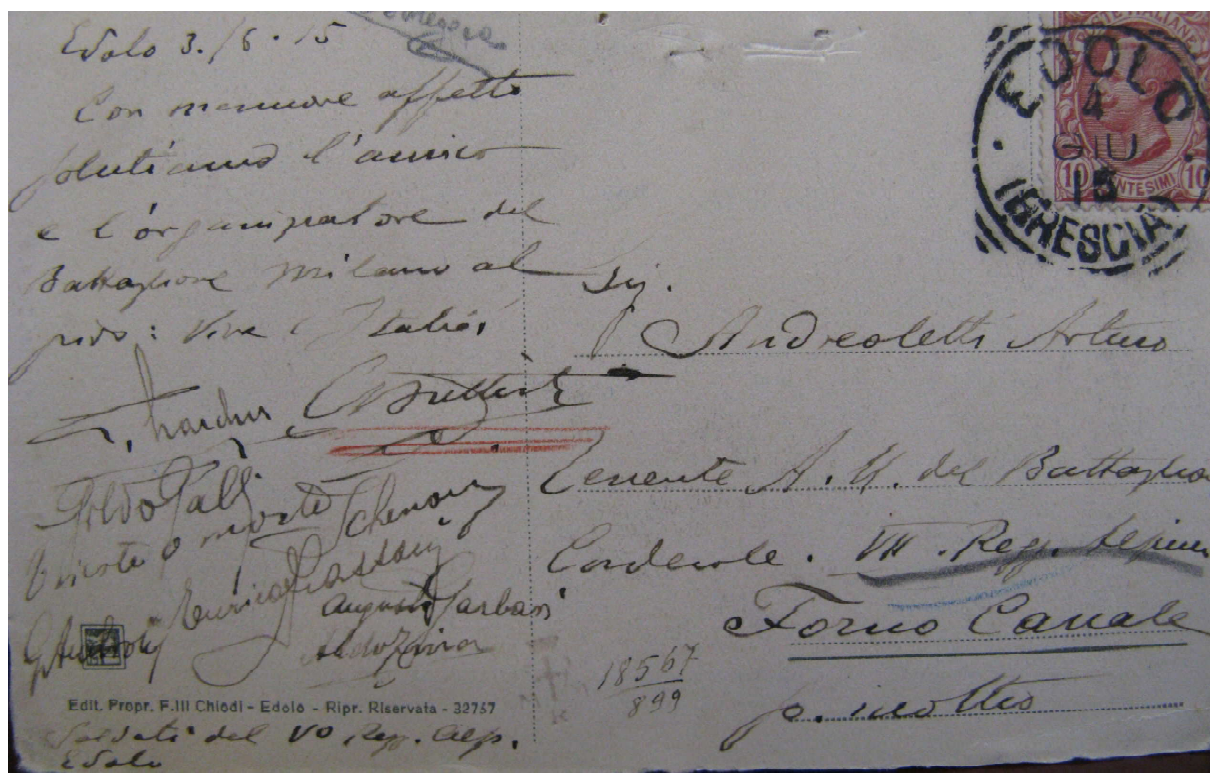 Edolo 3./6.15
Con memore affetto
salutiamo l'amico
e l'organizzatore del
Battaglione Milano al
grido: Viva l'Italia!
CBattisti
Vincete o morite
Augusto Garbari
Edit. Propr. F.lli Chiodi - Edolo - Ripr. Riservata - 32757
Soldati del Vº Regg. Alp.
Edolo
EDOLO
4
GIU
15
(BRESCIA)
POSTE ITALIANE
10 CENTESIMI 10
Sig.
Andreoletti Arturo
Tenente A. M. del Battaglio
Cordevole. VII. Regg. Alpini
Forno Canale
p. inoltro
18567
899